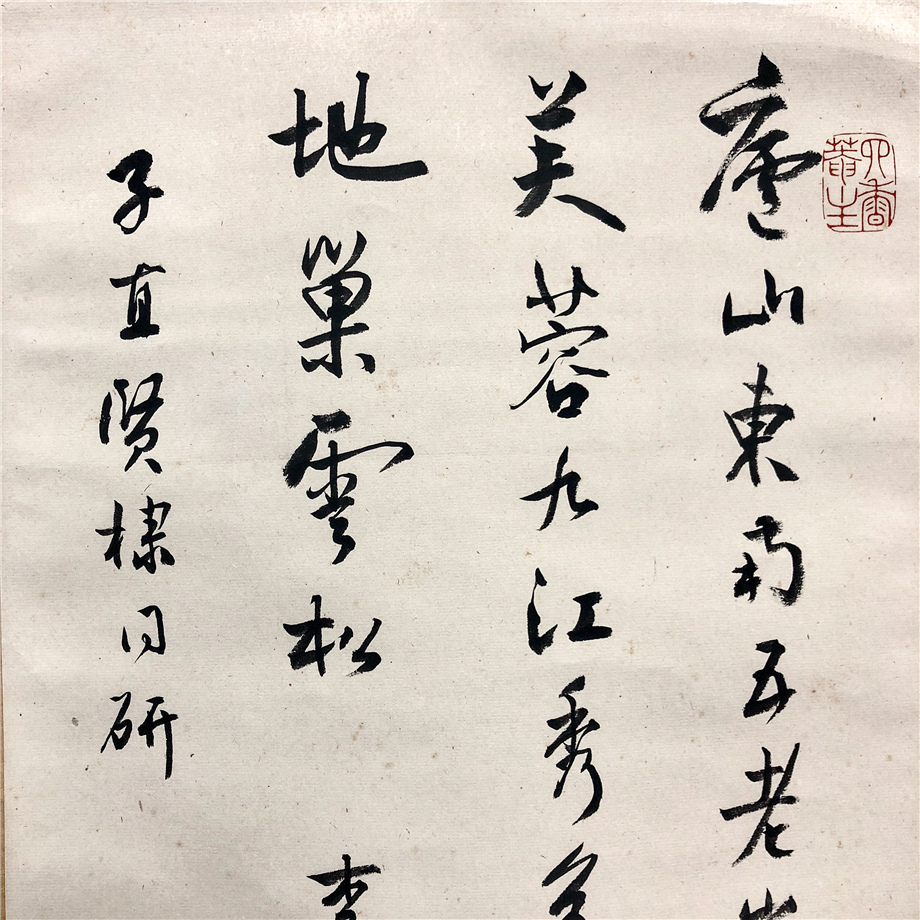 廬山東南五老
芙蓉九江秀色
地巢雲松 李
子直賢棣同研